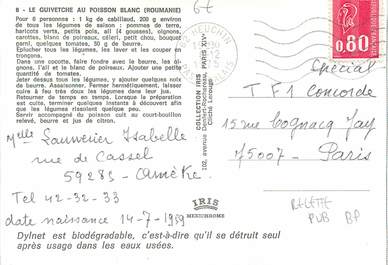 6€
8 - LE GUIVETCHE AU POISSON BLANC (ROUMANIE)
Pour 6 personnes : 1 kg de cabillaud, 200 g environ
de tous les légumes de saison : pommes de terre,
haricots verts, petits pois, ail (4 gousses), oignons,
carottes, blanc de poireaux, céleri, petit chou, bouquet
garni, quelques tomates, 50 g de beurre.
Eplucher tous les légumes, les laver et les couper en
tronçons.
Dans une cocotte, faire fondre avec le beurre, les oi-
gnons, l'ail et le blanc de poireaux. Ajouter une petite
quantité de tomates.
Jeter dessus tous les légumes, y ajouter quelques noix
de beurre. Assaisonner. Fermer hermétiquement, laisser
cuire à feu très doux les légumes dans leur jus.
Retourner dans le temps. Lorsque la préparation est
cuite, terminer quelques instants à découvert afin
que les légumes rissolent quelque peu.
Servir accompagné du poisson cuit au court-bouillon
relevé, beurre et jus de citron.
Melle Lauwerier Isabelle
rue de Cassel
59285 - Arnèke
Tel 42-32-33
date naissance 14-7-1959
COLLECTION IRIS
102, avenue Denfert-Rochereau, PARIS XIVe
IRIS
MEXICHROME
0,80
Spécial
TF1 Concorde
15 rue Cognacq Jay
75007 - Paris
RECETTE
PUB BP
Dylnet est biodégradable, c'est-à-dire qu'il se détruit seul
après usage dans les eaux usées.